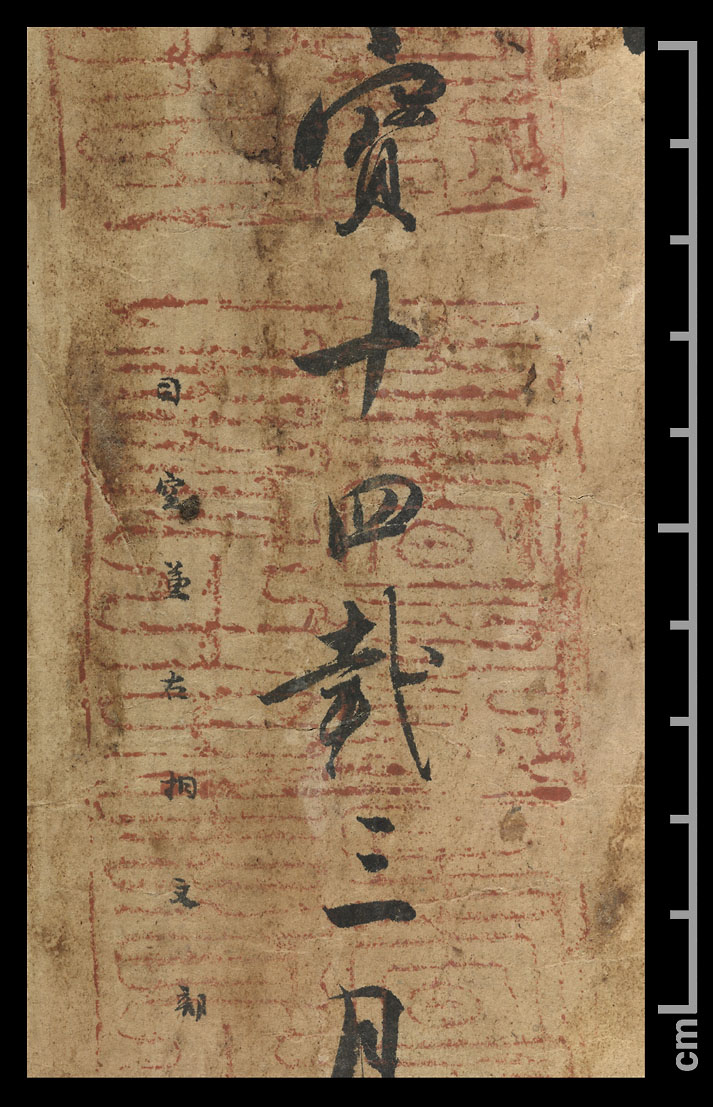 寶十四載三月
司空兼右相文部
cm